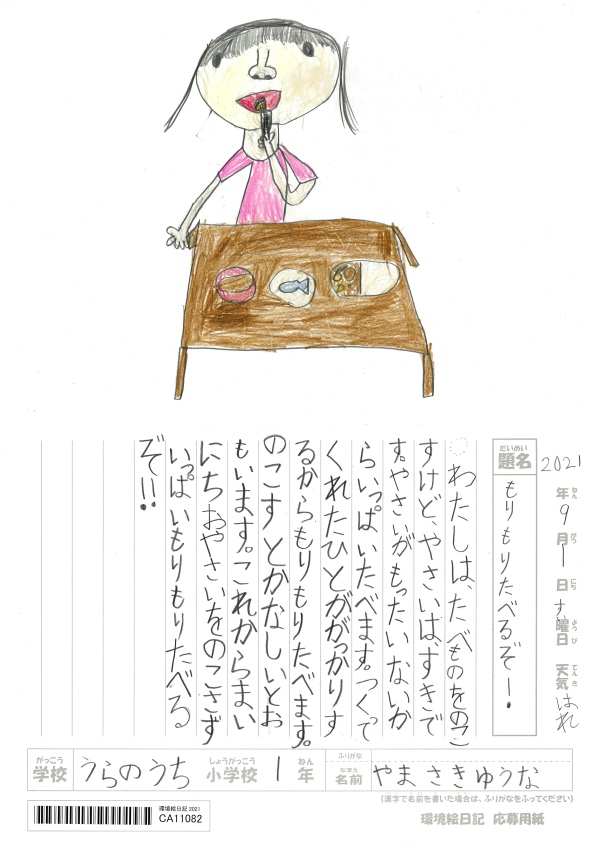 2021年9月1日すい曜日 天気はれ
ねん がつ にち ようび てんき
だいめい
題名
もりもりたべるぞー!
わたしは、たべものをのこ
すけど、やさいは、すきで
す。やさいがもったいないか
らいっぱいたべます。つくって
くれたひとががっかりす
るからもりもりたべます。
のこすとかなしいとお
もいます。これからまい
にちおやさいをのこさず
いっぱいもりもりたべる
ぞ!!
がっこう しょうがっこう ねん ふりがな
学校 うらのうち 小学校 1年 なまえ 名前 やまさきゆうな
(漢字で名前を書いた場合は、ふりがなをふってください)
環境絵日記 2021
CA11082
環境絵日記 応募用紙